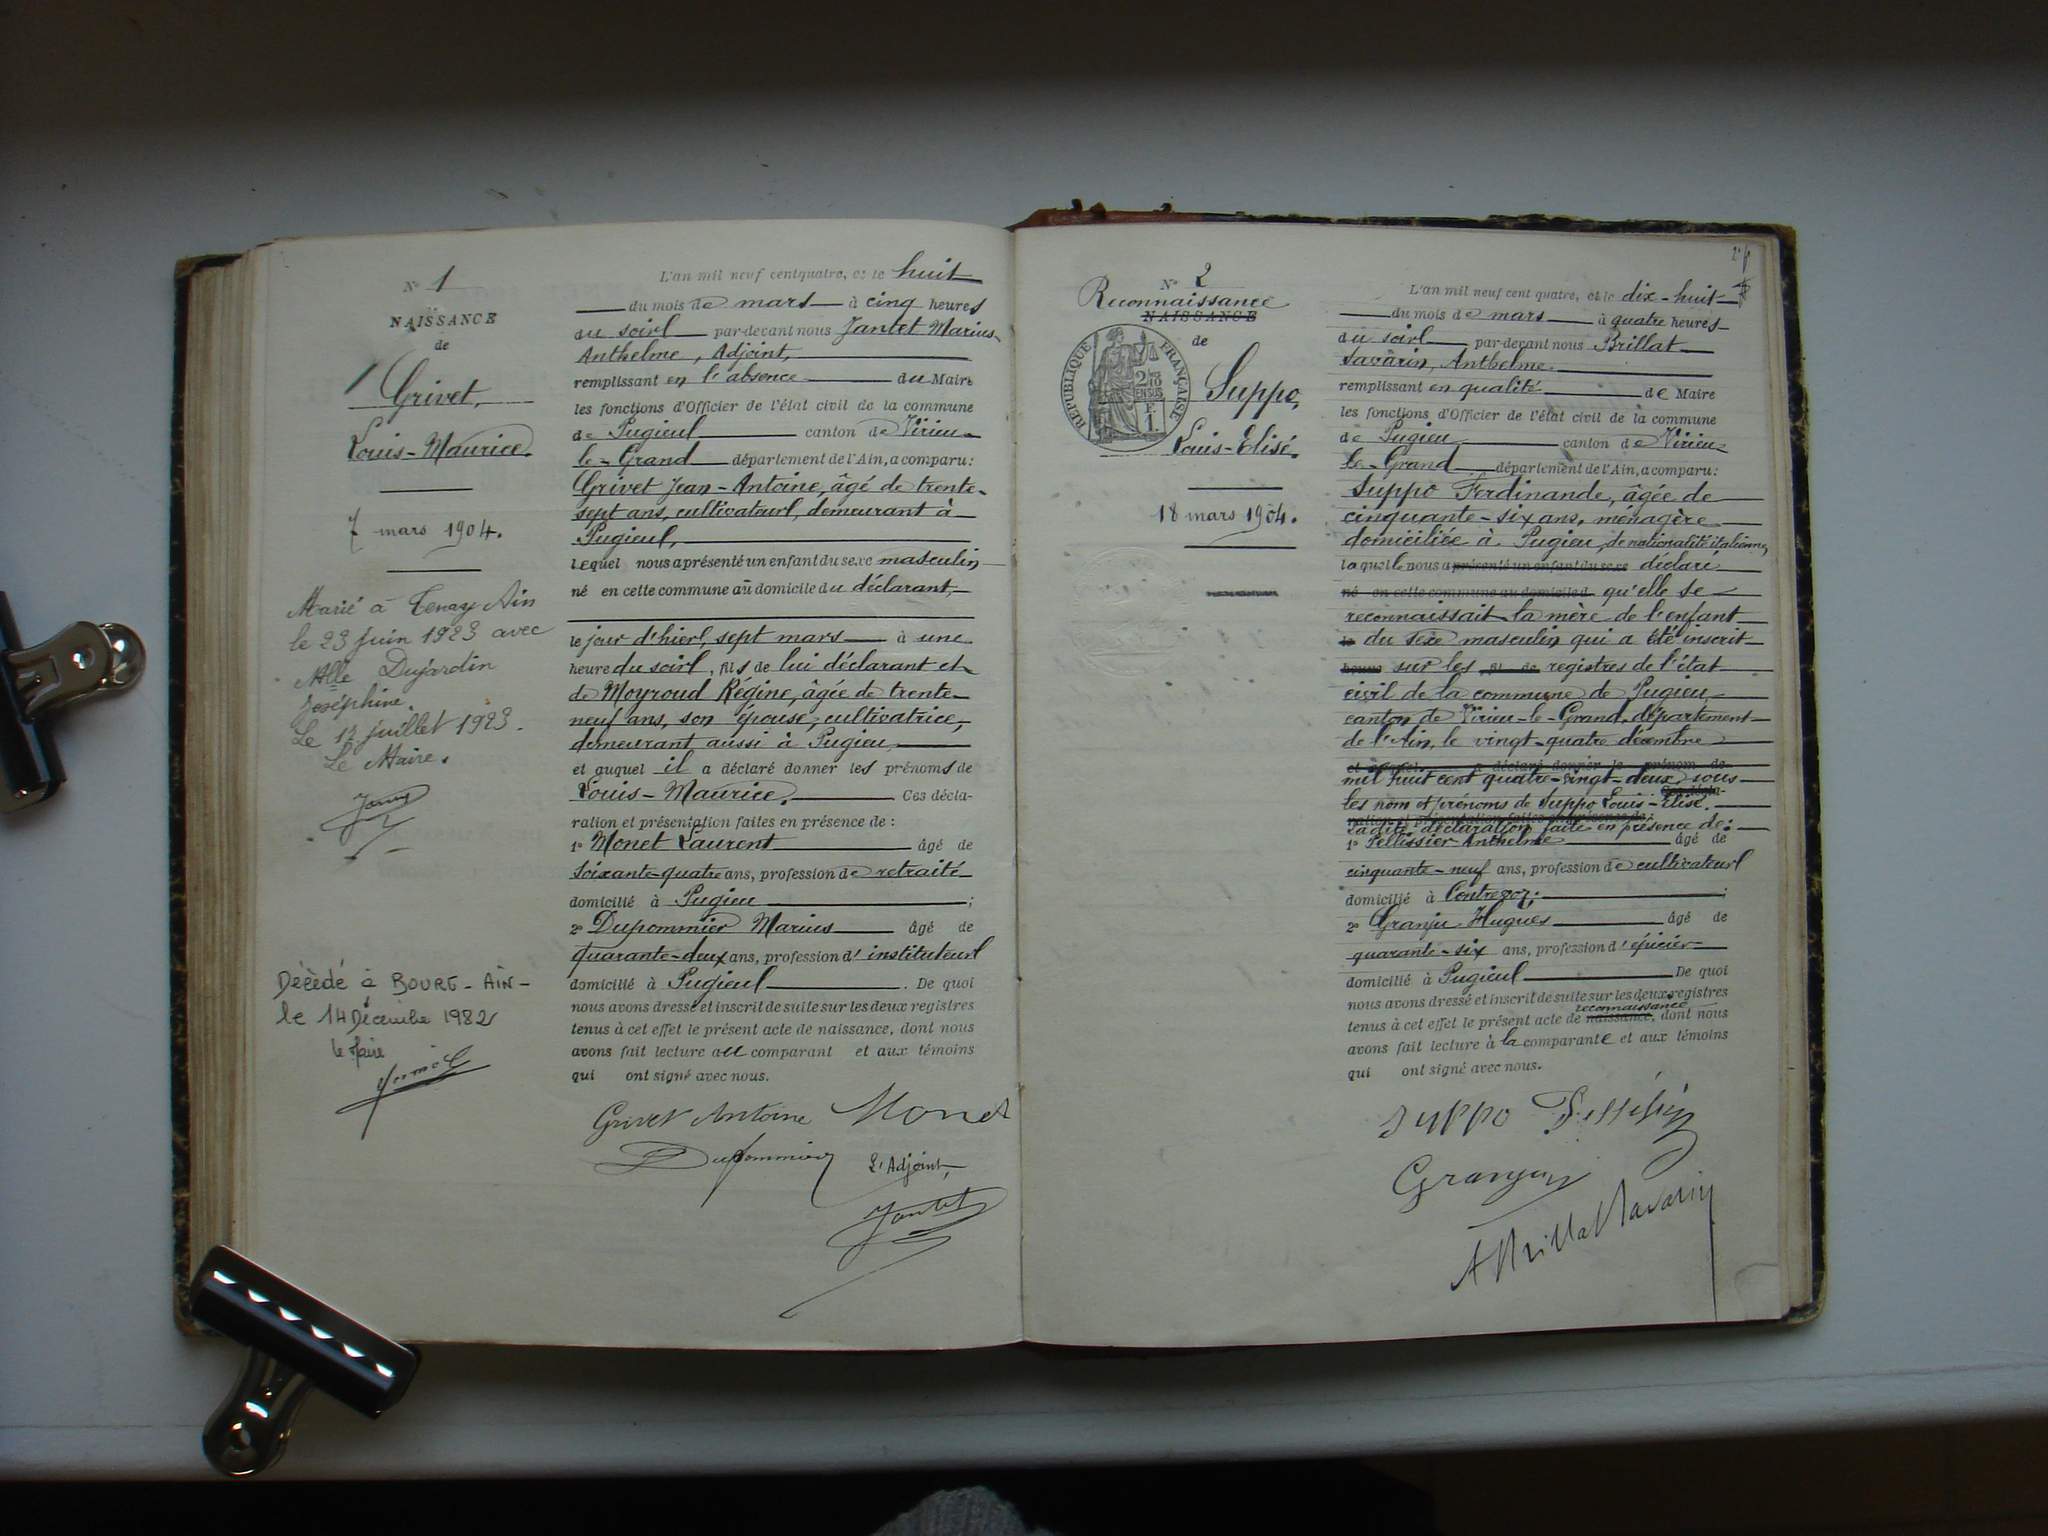 N° 1
NAISSANCE
de
Grivet,
Louis-Maurice.
7 mars 1904.
Marié à Tenay Ain
le 23 juin 1923 avec
Mlle Dujardin
Joséphine.
Le 12 juillet 1923.
Le Maire.
Décédé à BOURG-AIN-
le 14 Décembre 1982
le Maire
L'an mil neuf cent quatre, et le huit
du mois de mars à cinq heures
du soir par-devant nous Jantet Marius-
Anthelme, Adjoint,
remplissant en l'absence du Maire
les fonctions d'Officier de l'état civil de la commune
de Pugieu canton de Virieu-
le-Grand département de l'Ain, a comparu:
Grivet Jean-Antoine, âgé de trente-
sept ans, cultivateur, demeurant à
Pugieu,
lequel nous a présenté un enfant du sexe masculin
né en cette commune au domicile du déclarant,
le jour d'hier, sept mars à une
heure du soir, fils de lui déclarant et
de Moyroud Régine, âgée de trente-
neuf ans, son épouse, cultivatrice,
demeurant aussi à Pugieu
et auquel il a déclaré donner les prénoms de
Louis-Maurice. Ces décla-
ration et présentation faites en présence de :
1° Monet Laurent âgé de
soixante-quatre ans, profession de retraité
domicilié à Pugieu ;
2° Dupommier Marius âgé de
quarante-deux ans, profession d'instituteur
domicilié à Pugieu . De quoi
nous avons dressé et inscrit de suite sur les deux registres
tenus à cet effet le présent acte de naissance, dont nous
avons fait lecture au comparant et aux témoins
qui ont signé avec nous.
Grivet Antoine Monet
Dupommier L'Adjoint,
Jantet
N° 2
Reconnaissance
NAISSANCE
de
RÉPUBLIQUE FRANÇAISE
2/10 EN SUS
F. 1.
Suppo,
Louis-Elisé.
18 mars 1904.
L'an mil neuf cent quatre, et le dix-huit
du mois de mars à quatre heures
du soir par-devant nous Brillat
Savarin, Anthelme
remplissant en qualité de Maire
les fonctions d'Officier de l'état civil de la commune
de Pugieu canton de Virieu-
le-Grand département de l'Ain, a comparu:
Suppo Ferdinande, âgée de
cinquante-six ans, ménagère
domiciliée à Pugieu, de nationalité italienne,
laquelle nous a présenté un enfant du sexe déclaré
né en cette commune au domicile d qu'elle se
reconnaissait la mère de l'enfant
le du sexe masculin qui a été inscrit
heure sur les fil de registres de l'état
civil de la commune de Pugieu,
canton de Virieu-le-Grand, département
de l'Ain, le vingt-quatre décembre
et auquel a déclaré donner le prénom de
mil huit cent quatre-vingt-deux sous
Ces décla-
les nom et prénoms de Suppo Louis-Elisé.
ration et présentation faites en présence de:
La dite déclaration faite en présence de:
1° Pellissier Anthelme âgé de
cinquante-neuf ans, profession de cultivateur
domicilié à Contrevoz ;
2° Granju Hugues âgé de
quarante-six ans, profession d'épicier
domicilié à Pugieu De quoi
nous avons dressé et inscrit de suite sur les deux registres
reconnaissance
tenus à cet effet le présent acte de naissance, dont nous
avons fait lecture à la comparante et aux témoins
qui ont signé avec nous.
Suppo Pellissier
Granju
A Brillat Savarin